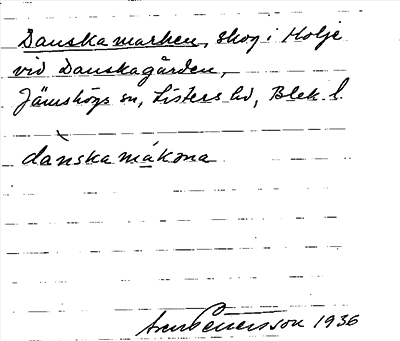 Danskamarken, skog i Holje
vid Danskagården,
Jämshögs sn, Listers hd, Blek. l.
dànskamákᴈna
Pettersson 1936